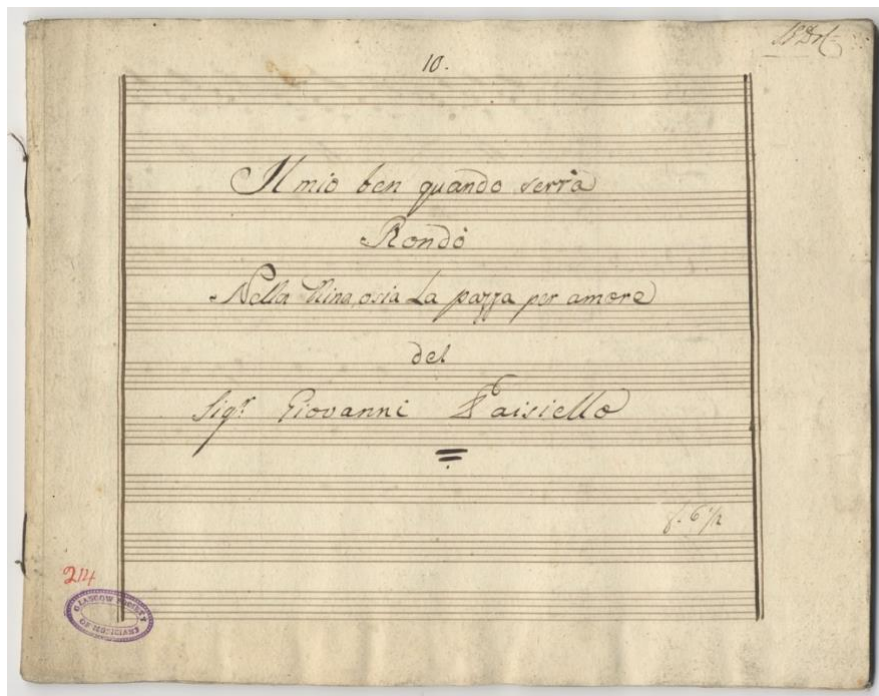 10.
Il mio ben quando verrà
Rondò
Nella Nina, osia La pazza per amore
del
Sigr. Giovanni Paisiello
f. 6 1/2
214
GLASGOW SOCIETY
OF MUSICIANS